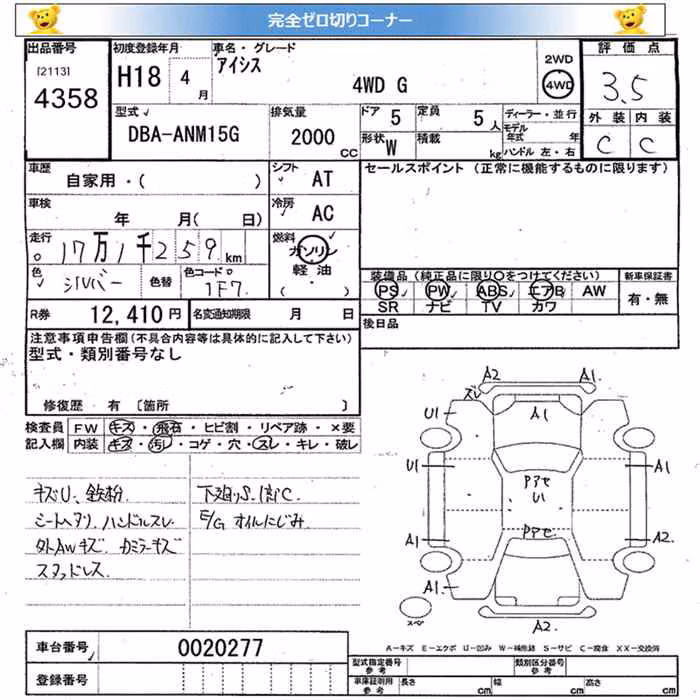 完全ゼロ切りコーナー
出品番号
[2113]
4358
初度登録年月
H18 4月
車名・グレード
アイシス
4WD G
2WD
4WD
評価点
3.5
外装 内装
C C
型式
DBA-ANM15G
排気量
2000 CC
ドア 5
定員 5人
形状 W
積載 kg
ディーラー・並行
モデル年式 年
ハンドル 左・右
車歴
自家用・( )
シフト AT
セールスポイント (正常に機能するものに限ります)
車検 年 月( 日)
冷房 AC
走行 17万1千259km
燃料 ガソリン
軽油
( ・ )
色 シルバー 色替
色コード 1F7
装備品 (純正品に限り○をつけてください)
PS PW ABS エアB AW
SR ナビ TV カワ
新車保証書
有・無
R券 12,410円
名変通知期限 月 日
後日品
注意事項申告欄(不具合内容等は具体的に記入して下さい)
型式・類別番号なし
修復歴 有 〔箇所 〕
検査員記入欄
FW キズ・飛石・ヒビ割・リペア跡・×要
内装 キズ・汚レ・コゲ・穴・スレ・キレ・破レ
キズU、鉄粉
シートヘタリ、ハンドルスレ
外AWキズ カミラーキズ
スタッドレス
下廻りS.傷C.
E/G オイルにじみ
A2 A1
ズレ
U1 A1
U1 A1
Pアセ
U1
A1 Pアセ A2
A1
スペ
A2
A-キズ E-エクボ U-凹み W-補修跡 S-サビ C-腐食 XX-交換済
車台番号 0020277
登録番号
型式指定番号
参考
類別区分番号
参考
車庫証明用
参考
長さ cm 幅 cm 高さ cm